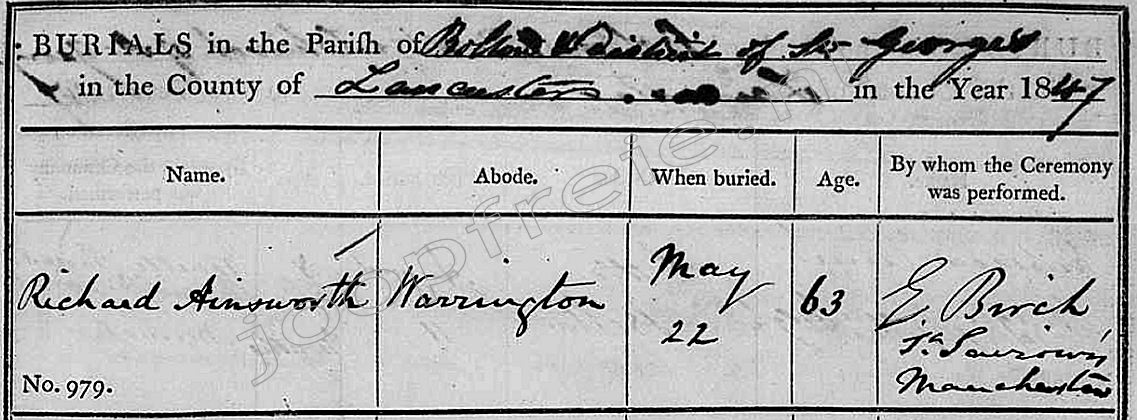 BURIALS in the Pariſh of Bolton District of St Georges
in the County of Lancaster in the Year 1847
Name. Abode. When buried. Age. By whom the Ceremony was performed.
Richard Ainsworth Warrington May 22 63 E. Birch
St Saviours
Manchester
No. 979.
joopfreie.nl